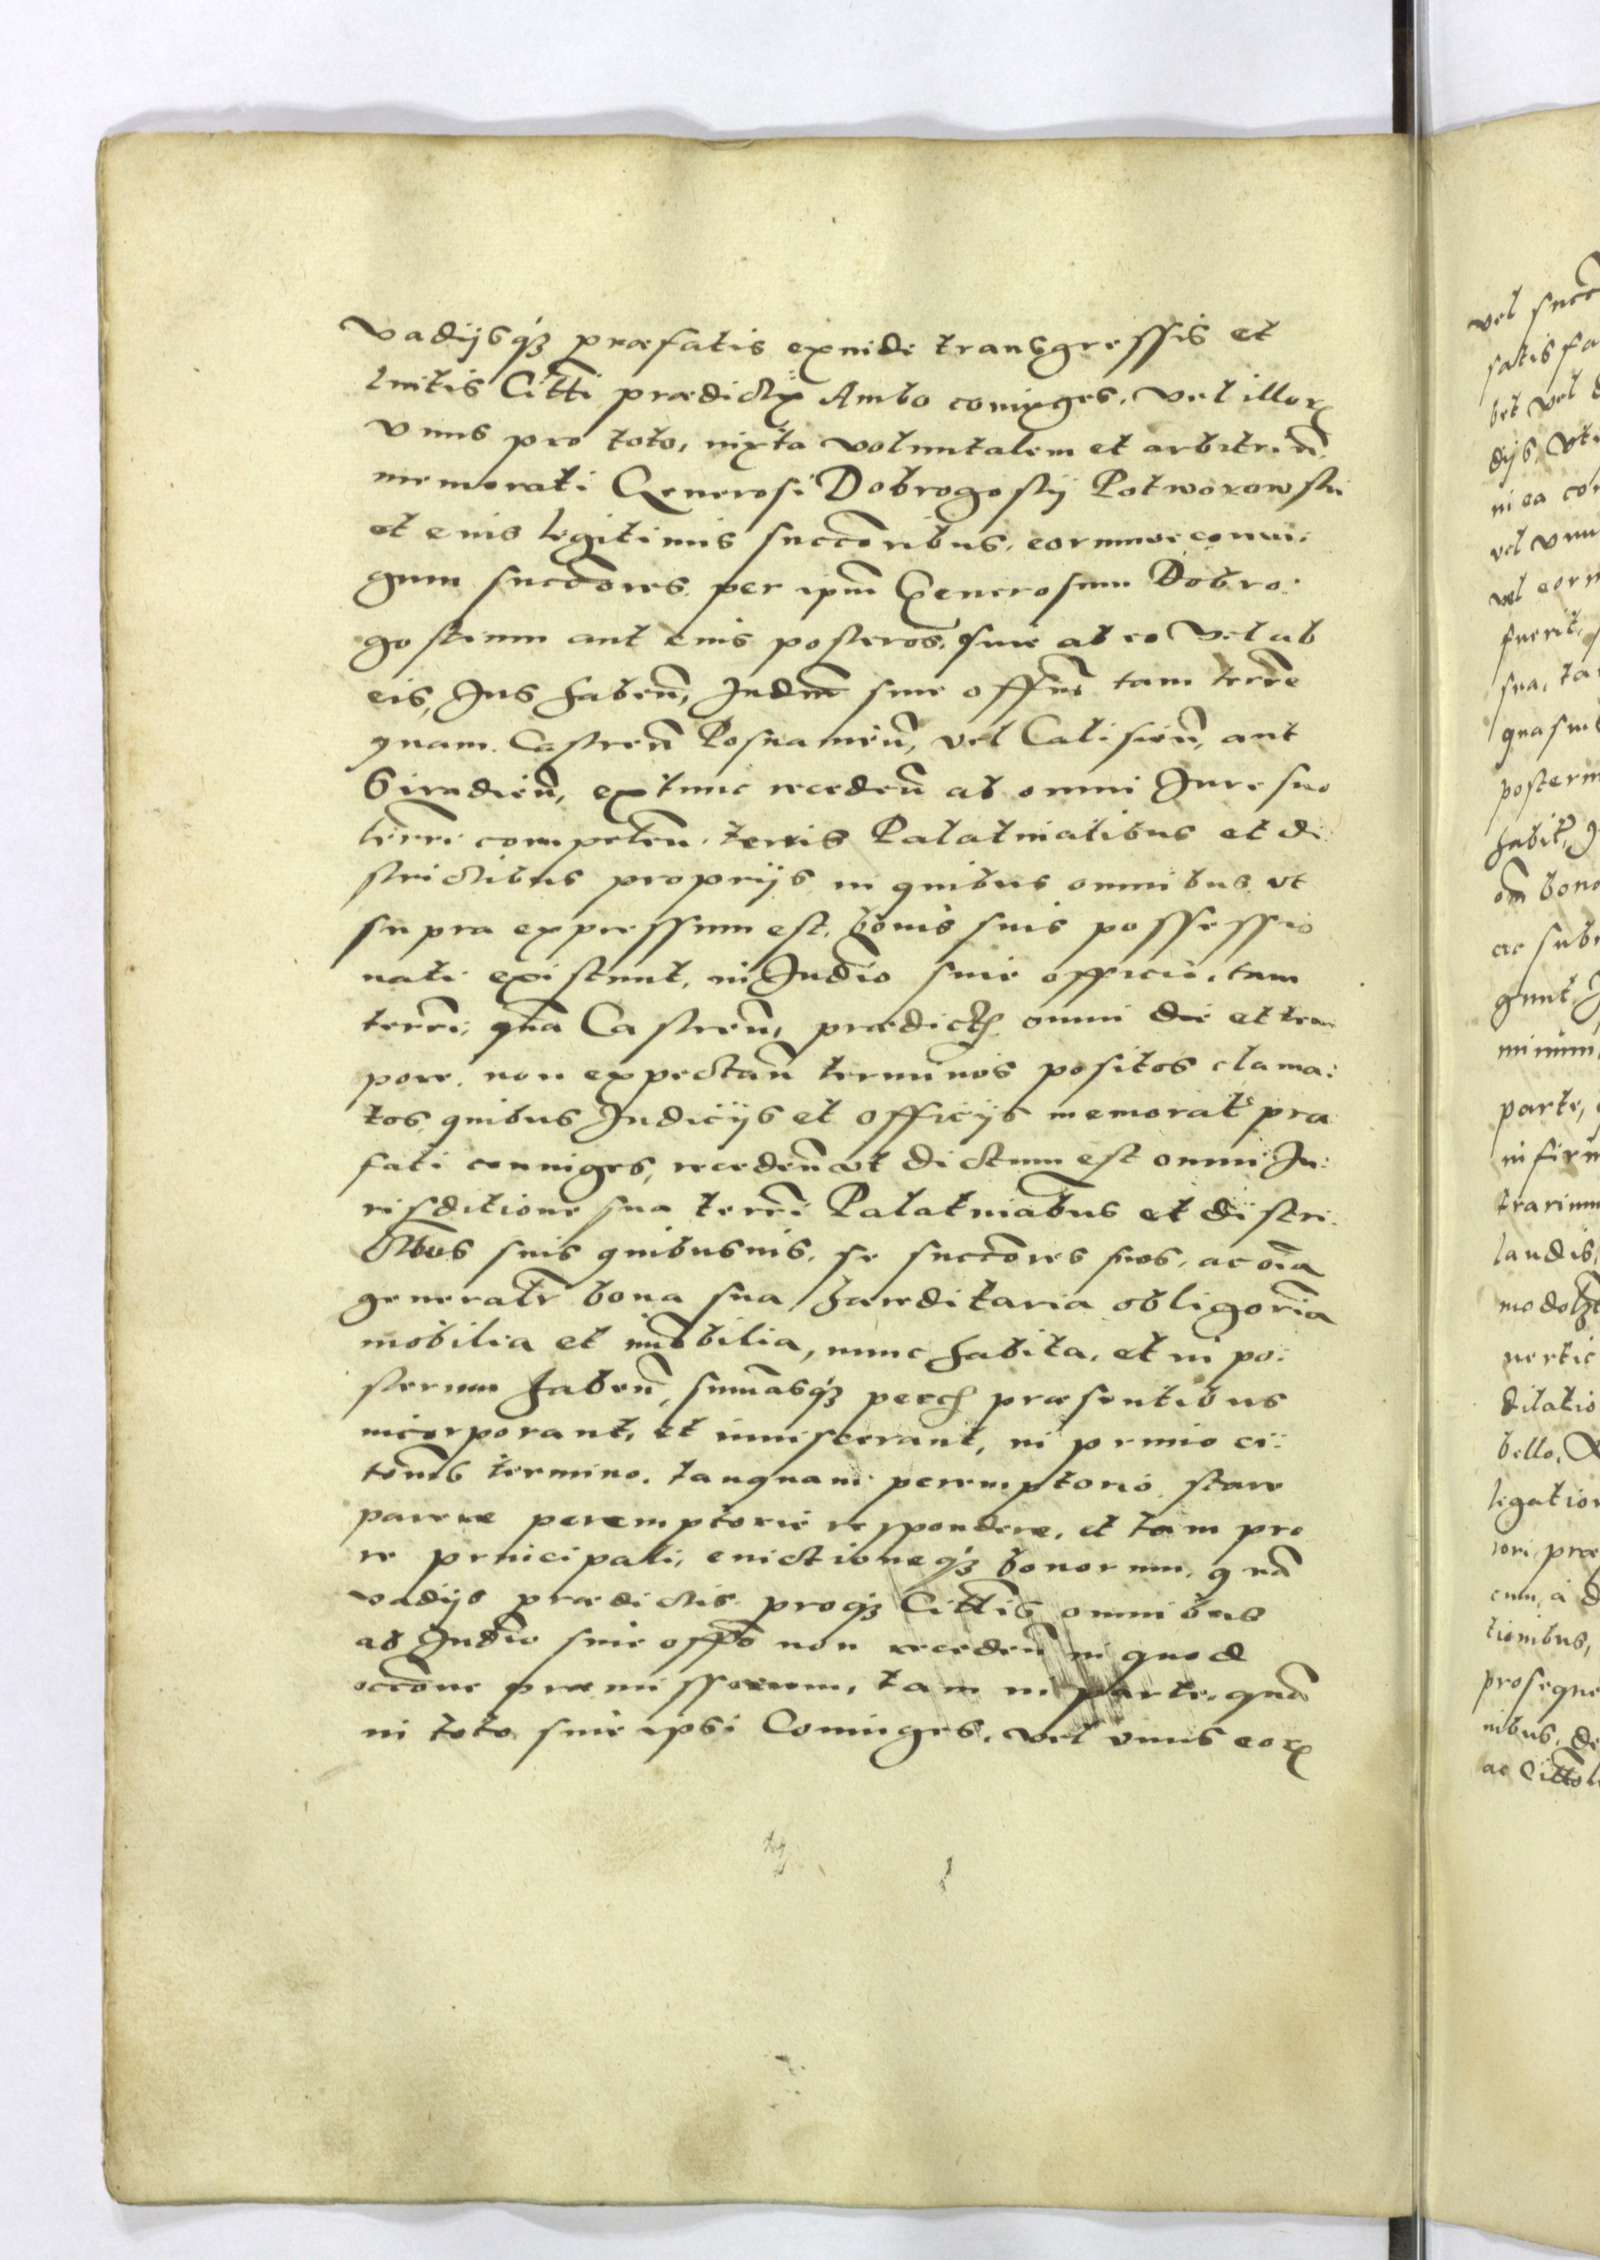 vadijsq3 præfatis exinde transgressis et
luitis Citti prædicti Ambo coniuges, vel illor
vnus pro toto, iuxta voluntatem et arbitriū
memorati Generosi Dobrogostij Potworowski
et eius legitimis succōribus, eorumue coniu:
gum succōores per ipm̄ Generosum Dobro:
gostium aut eius posteros, siue ab eo vel ab
eis, Ius haben̄, Iudm̄ siue offm̄ tam terrē
quam Castren̄ Posnanień, vel Calisień, aut
Siradień, extunc receden̄ ab omni Iure suo
terrē competen̄ terris Palatinatibus et di
strictibus proprijs in quibus omnibus vt
supra expressum est, bonis suis possessio
nati existunt, in Iudō siue officiū, tam
terrē, quā Castren̄, prædict omni die et tem
pore, non expectan̄ terminos positos clama:
tos, quibus Iudicijs et officijs memorat præ
fati coniuges, receden̄ vt dictum est omni Iu:
risditione sua terrē Palatinabus et distri:
ctbus suis quibusuis, se succōres suos, ac oīa
generatr bona sua hæreditaria obligoria
mobilia et imōbilia, nunc habita, et in po:
sterum haben̄, sumasq3 pecch præsentibus
incorporant, et inuiscerant, in primo ci:
tōnis termino, tanquam peremptorio stare
parere peremptorie respondere, et tam pro
re principali, euictioneq3 bonorum, quā
vadijs prædictis proq3 Cittis omnibus
ab Iudō siue offō non receden̄ in quod
occōne præmissorum, tam in parte, quā
in toto siue ipsi Coniuges, vel vnus eor

vel succ
satisfa
bet vel
dijs, vti
ni ea con
vel vnu
vel eorn
fuerit,
sua, ta
quasuis
posterm
habit,
om̄ bono
ac subi
gunt,
minum
parte,
infirm
trarium
laudis,
modol
uertic
dilatio
bello,
legation
iori præ
cum, a d
tionibus,
proseque
nibus, de
ac Cittōi